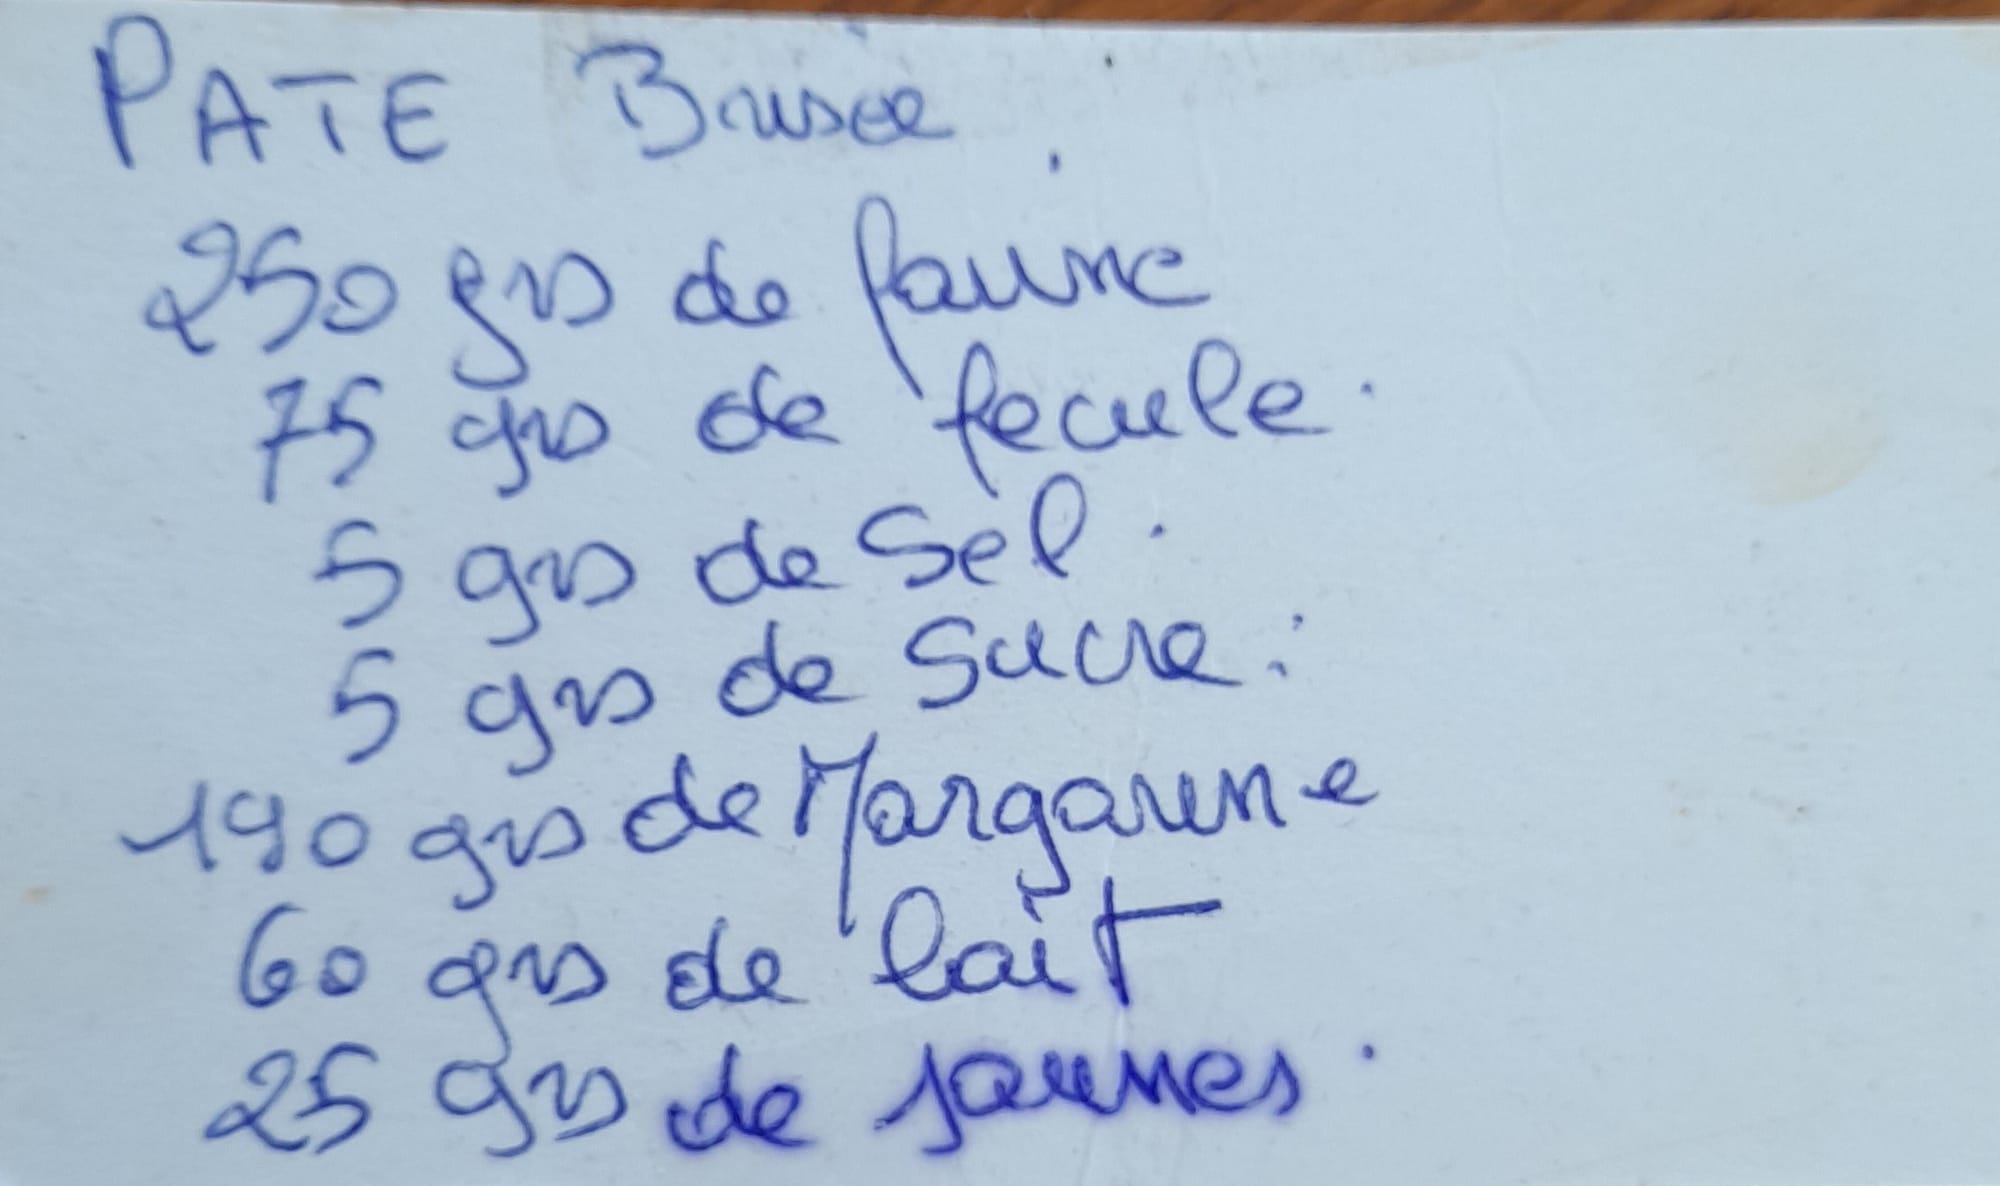 PATE Brisée
250 grs de farine
75 grs de fecule.
5 grs de Sel.
5 grs de Sucre:
190 grs de Margarine
60 grs de lait
25 grs de jaunes.